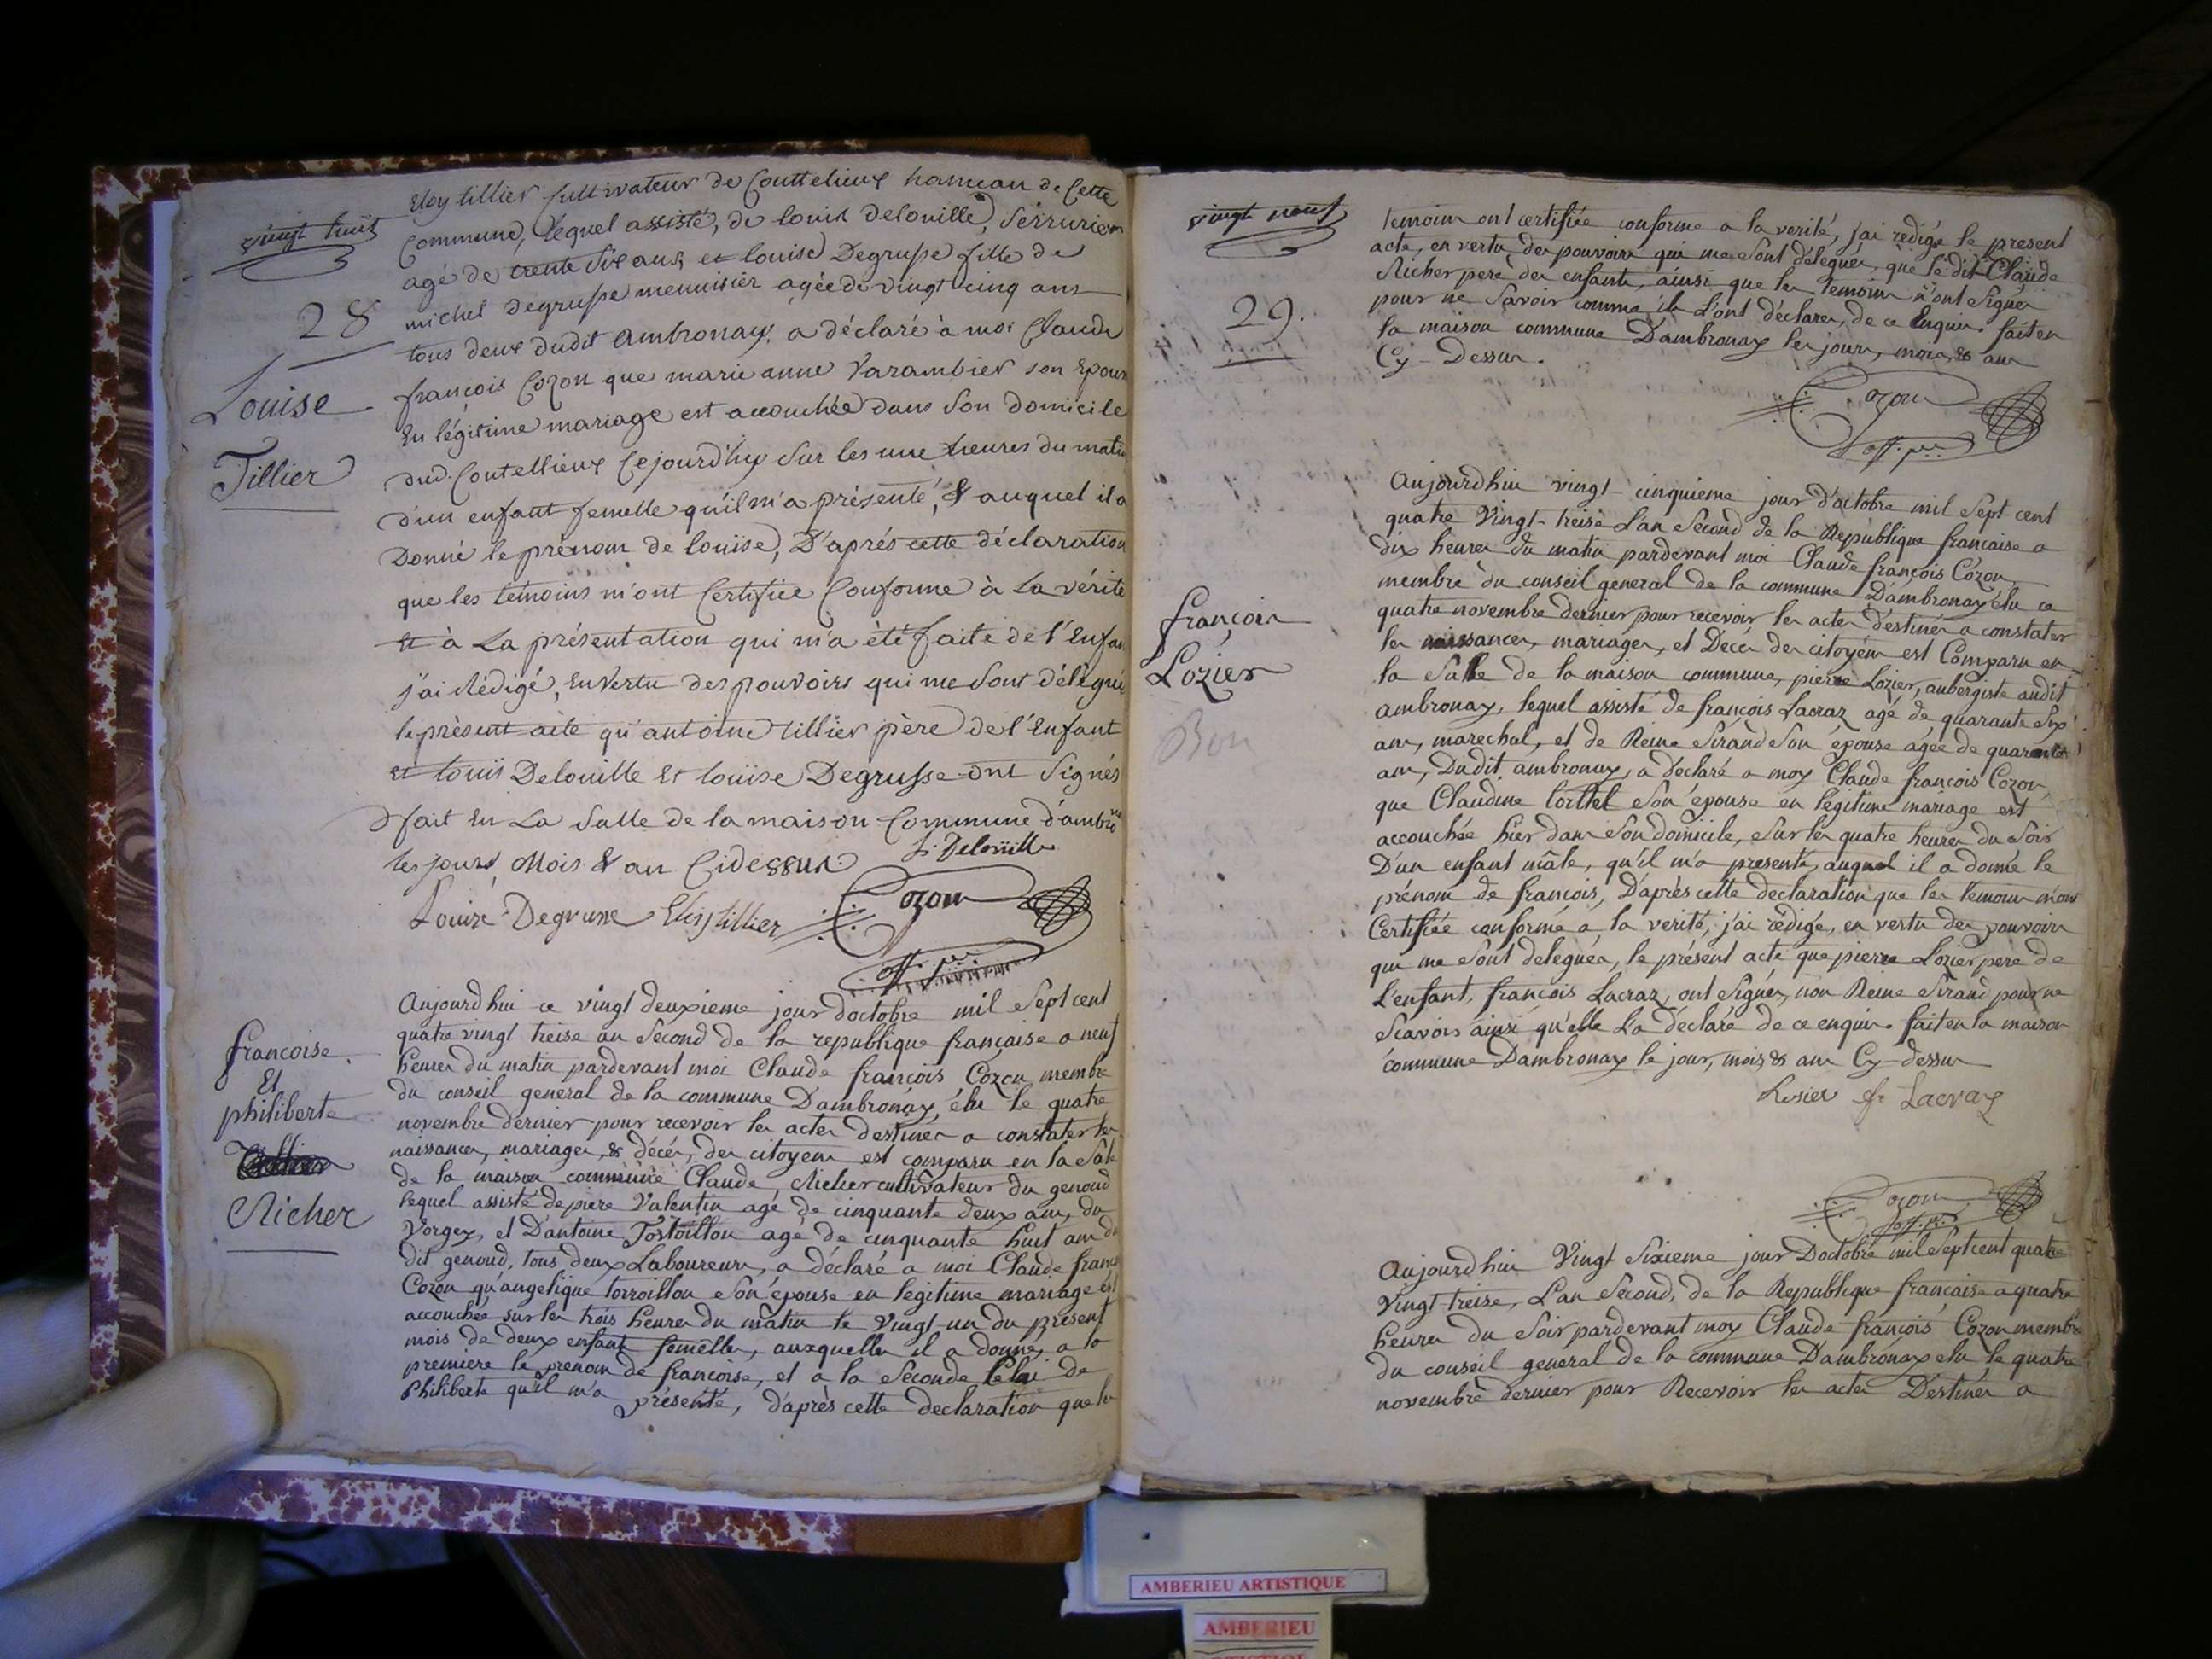 vingt huit
28
Louise
Tillier
Eloy tillier Cultivateur de Couttelieux hameau de Cette
Commune, lequel assisté, de louis delouille, Serrurier
agé de trente Six ans, et louise Degrusse fille de
michel degrusse menuisier agée de vingt cinq ans
tous deux dudit ambronay, a déclaré à moi Claude
françois Cozon que marie anne Varambier son Epouse
En légitime mariage est accouchée dans son domicile
dud. Coutellieux Cejourd'hy Sur les une heures du matin
d'un enfant femelle qu'il m'a présenté, & auquel il a
Donné le prénom de louise, D'aprés cette déclaration
que les témoins m'ont Certifiée Conforme à La vérité
Et à La présentation qui m'a été faite de l'Enfan
j'ai Rédigé, Envertu des pouvoirs qui me Sont délégués
le présent acte qu'antoine tillier père de l'Enfant
et louis Delouille Et louise Degrusse ont Signés
fait En La Salle de la maison Commune d'ambro
les jours, Mois & an Cidessus
L. Delouille
Louise Degruse Eloy tillier Cozon
off. p.
francoise
Et
philiberte
Richer
Aujourdhui ce vingt deuxieme jour doctobre mil Sept cent
quatre vingt treise an Second de la republique francaise a neuf
heures du matin pardevant moi Claude françois Cozon membre
du conseil general de la commune D'ambronay, élu le quatre
novembre dernier pour recevoir les actes destinés a constater les
naissances, mariages, & décés, des citoyens est comparu en la Sale
de la maison commune Claude Richer cultivateur du genoud
lequel assisté de piere Valentin agé de cinquante deux ans, du
Vorgey, et D'antoine Tortoillon agé de cinquante huit ans du
dit genoud, tous deux Laboureurs, a déclaré a moi Claude franc
Cozon qu'angelique torroillon Son épouse en legitime mariage est
accouchée sur les trois heures du matin le Vingt-un du présent
mois de deux enfant femelles, auxquelles il a donné, a la
premiere le prenom de francoise, et a la Seconde Celui de
Philiberte qu'il m'a présenté, d'après cette declaration que les
vingt neuf
29.
temoins ont certifiée conforme a la verité, j'ai redigé le present
acte, en vertu des pouvoirs qui me Sont délegués, que le dit Claude
Richer pere des enfants, ainsi que les temoins n'ont Signés
pour ne Savoir comme ils L'ont déclarer, de ce Enquis. fait en
la maison commune D'ambronay les jours, mois, & ans
Cy-Dessus.
Cozon
off. p.
françois
Lozier
Bon
Aujourdhui vingt-cinquieme jour d'octobre mil Sept cent
quatre Vingt-treise L'an Second de la Republique francaise a
dix heures du matin pardevant moi Claude françois Cozon
membre du conseil general de la commune D'ambronay élu ce
quatre novembre dernier pour recevoir les actes destinés a constater
les naissances, mariages, et Décés des citoyens est Comparu en
la Salle de la maison commune, pierre Lozier, aubergiste audit
ambronay, lequel assisté de françois Lacraz agé de quarante Six
ans, marechal, et de Reine Sirand Son épouse agée de quarante
ans, Dudit ambronay, a déclaré a moy Claude françois Cozon,
que Claudine Corttet Son épouse en légitime mariage est
accouchée hier dans Son domicile, Sur les quatre heures du Soir
D'un enfant mâle, qu'il m'a presenté, auquel il a donné le
prénom de françois, D'après cette declaration que les temoins m'ont
Certifiée conforme a la verité, j'ai redigé, en vertu des pouvoirs
qui me Sont delegués, le présent acte que pierre Lozier pere de
L'enfant, francois Lacraz, ont Signés, non Reine Sirand pour ne
Scavoir ainsi qu'elle La déclaré de ce enquis. fait en la maison
commune Dambronay le jour, mois, & ans Cy-dessus
Rosier fr Lacraz
Cozon
off. p.
Aujourdhui Vingt Sixieme jour Doctobre mil Sept cent quatre
Vingt-treise, L'an Second, de la Republique francaise a quatre
heures du Soir pardevant moy Claude françois Cozon membre
du conseil general de la commune D'ambronay elu le quatre
novembre dernier pour Recevoir les actes Destinés a
AMBERIEU ARTISTIQUE
AMBERIEU